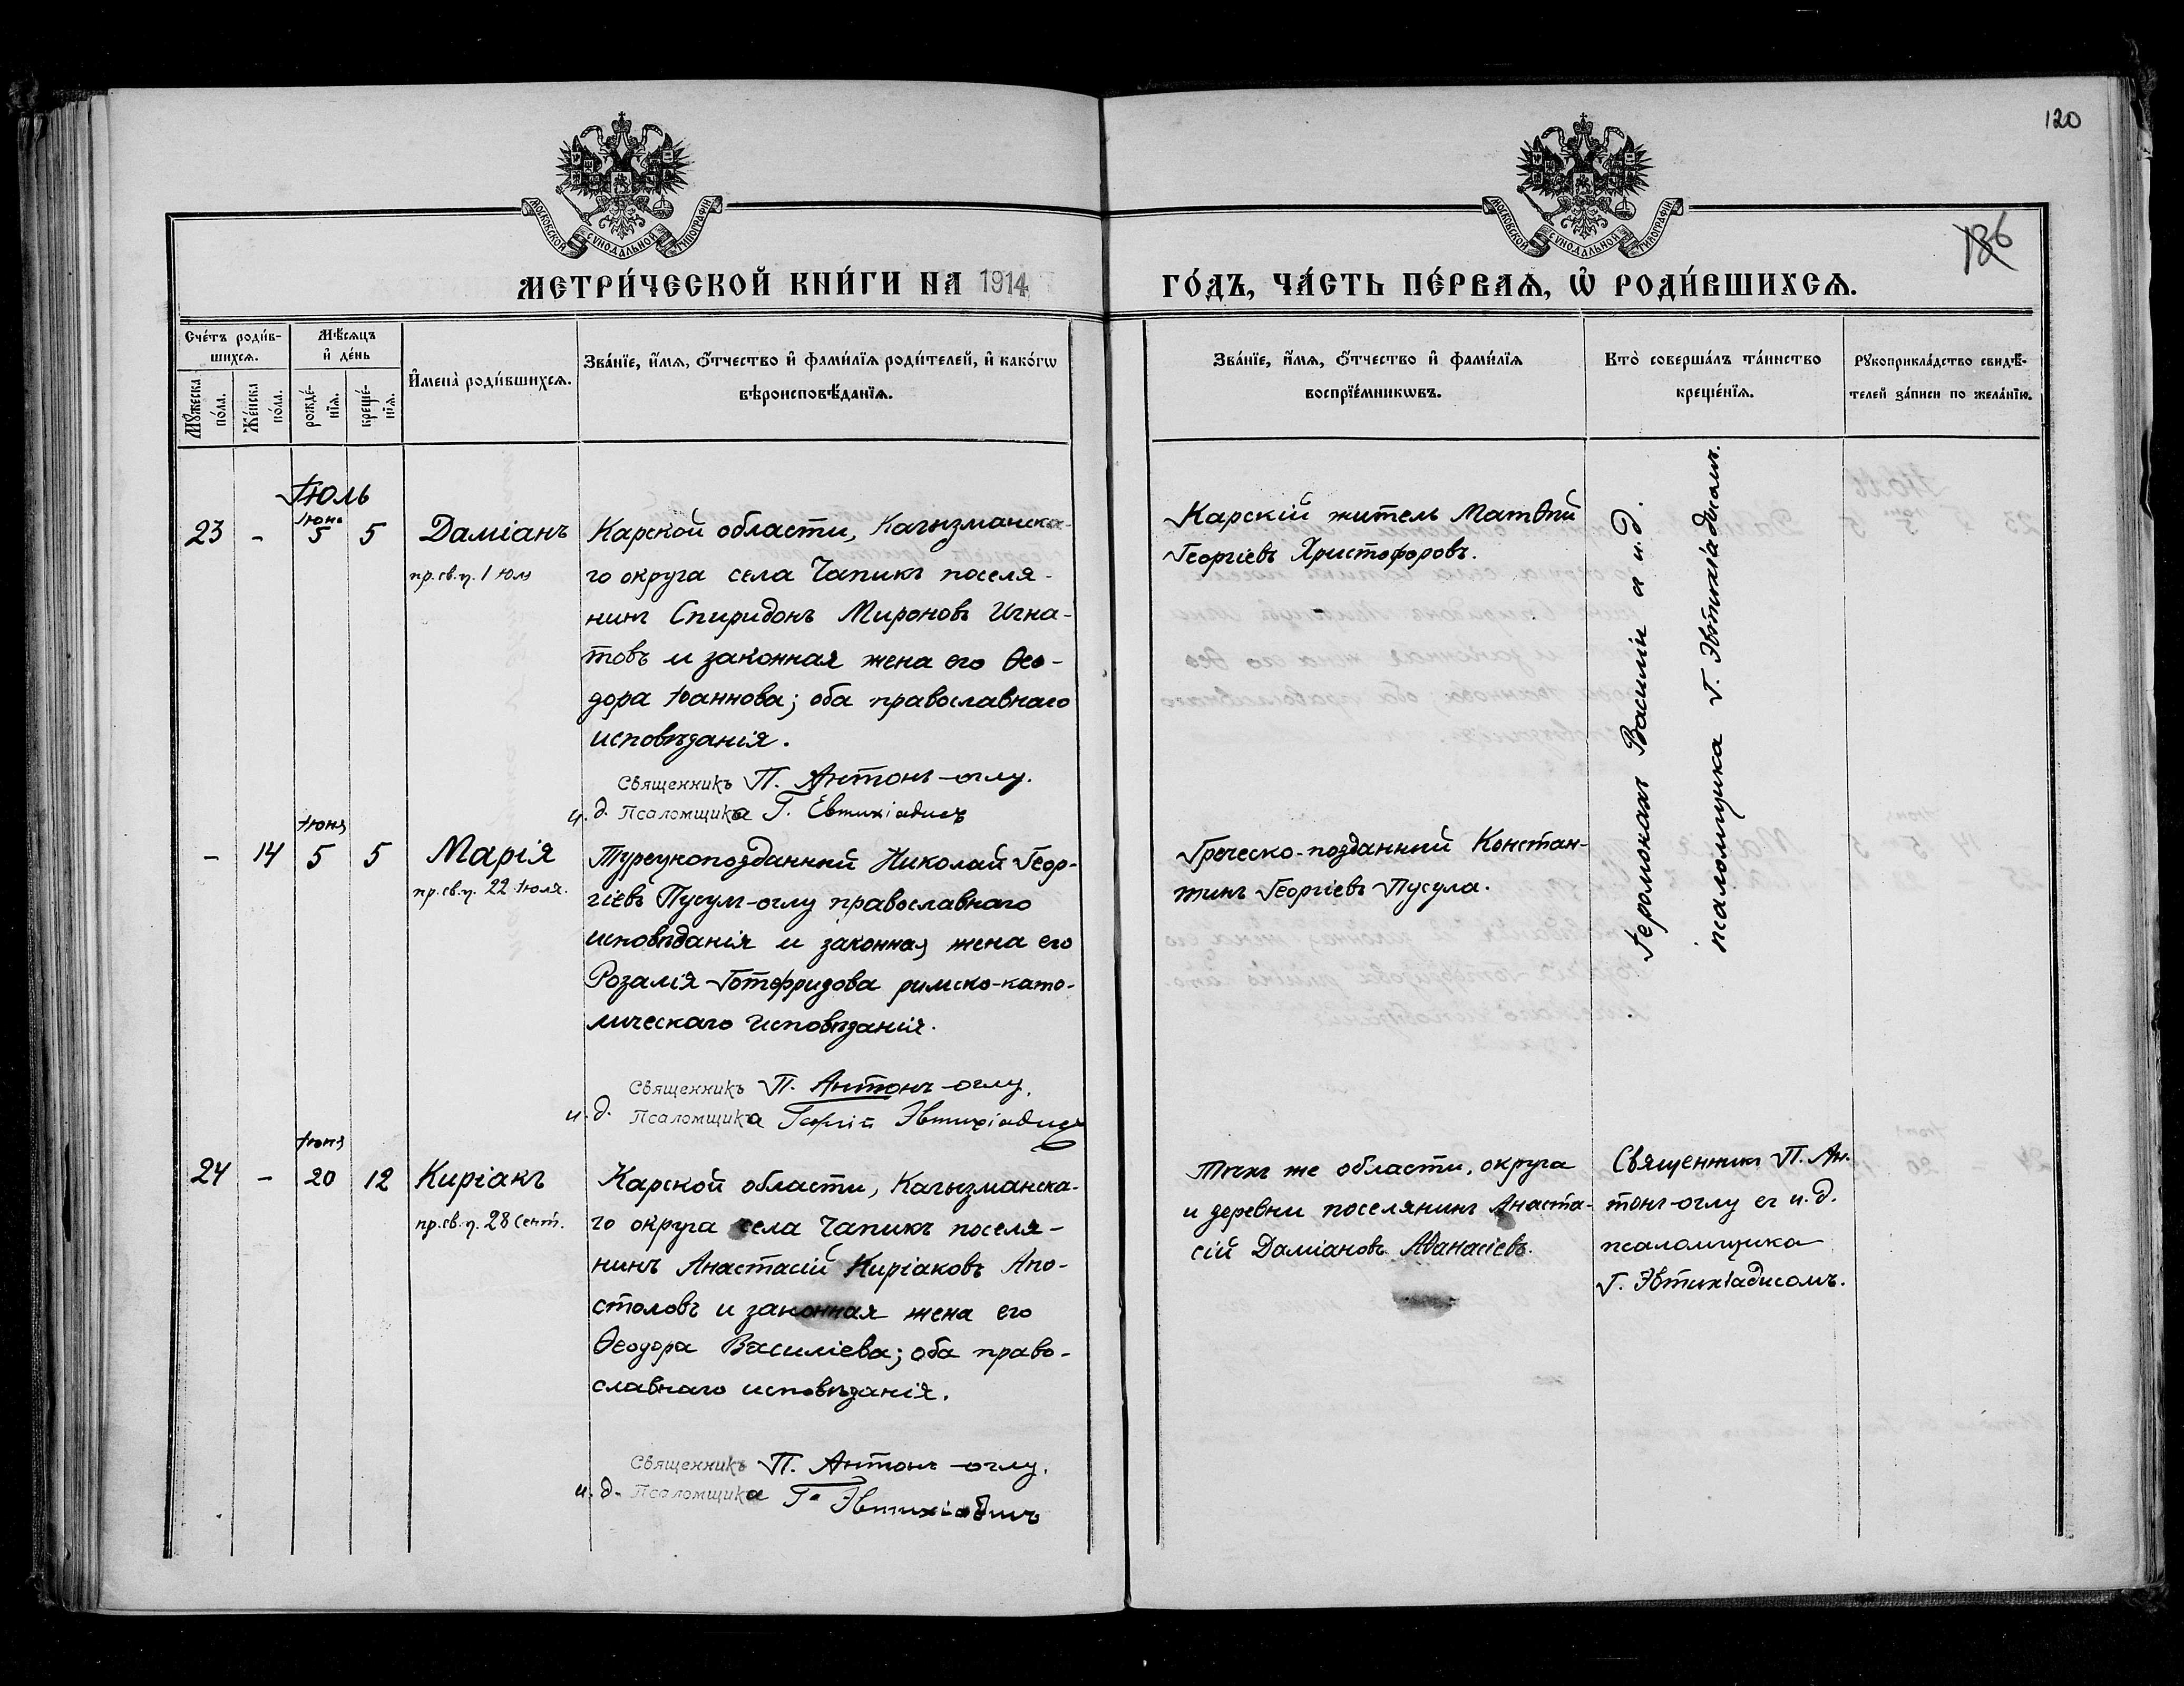 120
МОСКОВСКОЙ СУНОДАЛЬНОЙ ТИПОГРАФІИ
МОСКОВСКОЙ СУНОДАЛЬНОЙ ТИПОГРАФІИ
МЕТРИ́ЧЕСКОЙ КНИ́ГИ НА 1914
ГО́ДЪ, ЧА́СТЬ ПЕ́РВАѦ, Ѡ҆ РОДИ́ВШИХСѦ.
Сче́тъ роди́в-
шихсѧ.
Мꙋ́жеска
по́ла.
Же́нска
по́ла.
Мѣ́сѧцъ
и҆ де́нь
рожде́-
нїѧ.
креще́-
нїѧ.
И҆мена̀ роди́вшихсѧ.
Зва́нїе, и҆́мѧ, ѻ҆́тчество и҆ фами́лїѧ роди́телей, и҆ како́гѡ
вѣроисповѣ́данїѧ.
Зва́нїе, и҆́мѧ, ѻ҆́тчество и҆ фами́лїѧ
воспрїе́мникѡвъ.
Кто̀ соверша́лъ та́инство
креще́нїѧ.
Рꙋкоприкла́дство свидѣ́-
телей за́писи по жела́нїю.
Іюль
23
-
Іюня
5
5
Даміанъ
пр.св.п. 1 юля
Карской области, Кагызманска-
го округа села Чапикъ поселя-
нинъ Спиридонъ Мироновъ Игна-
товъ и законная жена его Ѳео-
дора Іоаннова; оба православнаго
исповѣданія.
Священникъ П. Антонъ-оглу.
и. д. Псаломщика Г. Евтихіадисъ
Карскій житель Матѳей
Георгіевъ Христофоровъ.
Іеромонахъ Василій и и.д.
псаломщика Г. Эвтихіадисомъ.
-
14
Іюня
5
5
Марія
пр.св.п. 22 Іюля.
Турецкоподданный Николай Геор-
гіевъ Пусул-оглу православнаго
исповѣданія и законная жена его
Розалія Готфридова римско-като-
лическаго исповѣданія.
Священникъ П. Антонъ-оглу.
и. д. Псаломщика Георгій Эвтихіадисъ
Греческо-подданный Констан-
тинъ Георгіевъ Пусула.
24
-
Іюня
20
12
Киріакъ
пр.св.п. 28 Сент.
Карской области, Кагызманска-
го округа села Чапикъ поселя-
нинъ Анастасій Киріаковъ Апо-
столовъ и законная жена его
Ѳеодора Василіева; оба право-
славнаго исповѣданія.
Священникъ П. Антонъ-оглу.
и. д. Псаломщика Г. Эвтихіадисъ
Тѣхъ же области, округа
и деревни поселянинъ Анаста-
сій Даміановъ Аѳанасіевъ.
Священникъ П. Ан-
тонъ-оглу съ и.д.
псаломщика
Г. Эвтихіадисомъ.